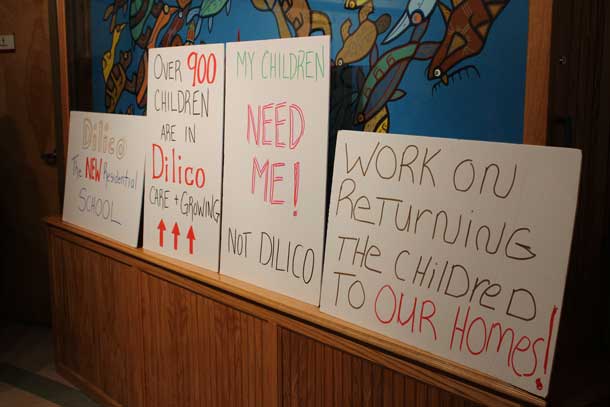 Dilico
The NEW Residential
SCHOOL
OVER 900
CHILDREN
ARE IN
Dilico
CARE + GROWING
MY CHILDREN
NEED
ME!
NOT DILICO
WORK ON
ReTURNING
THE CHilDReD
TO OUR HOMes!